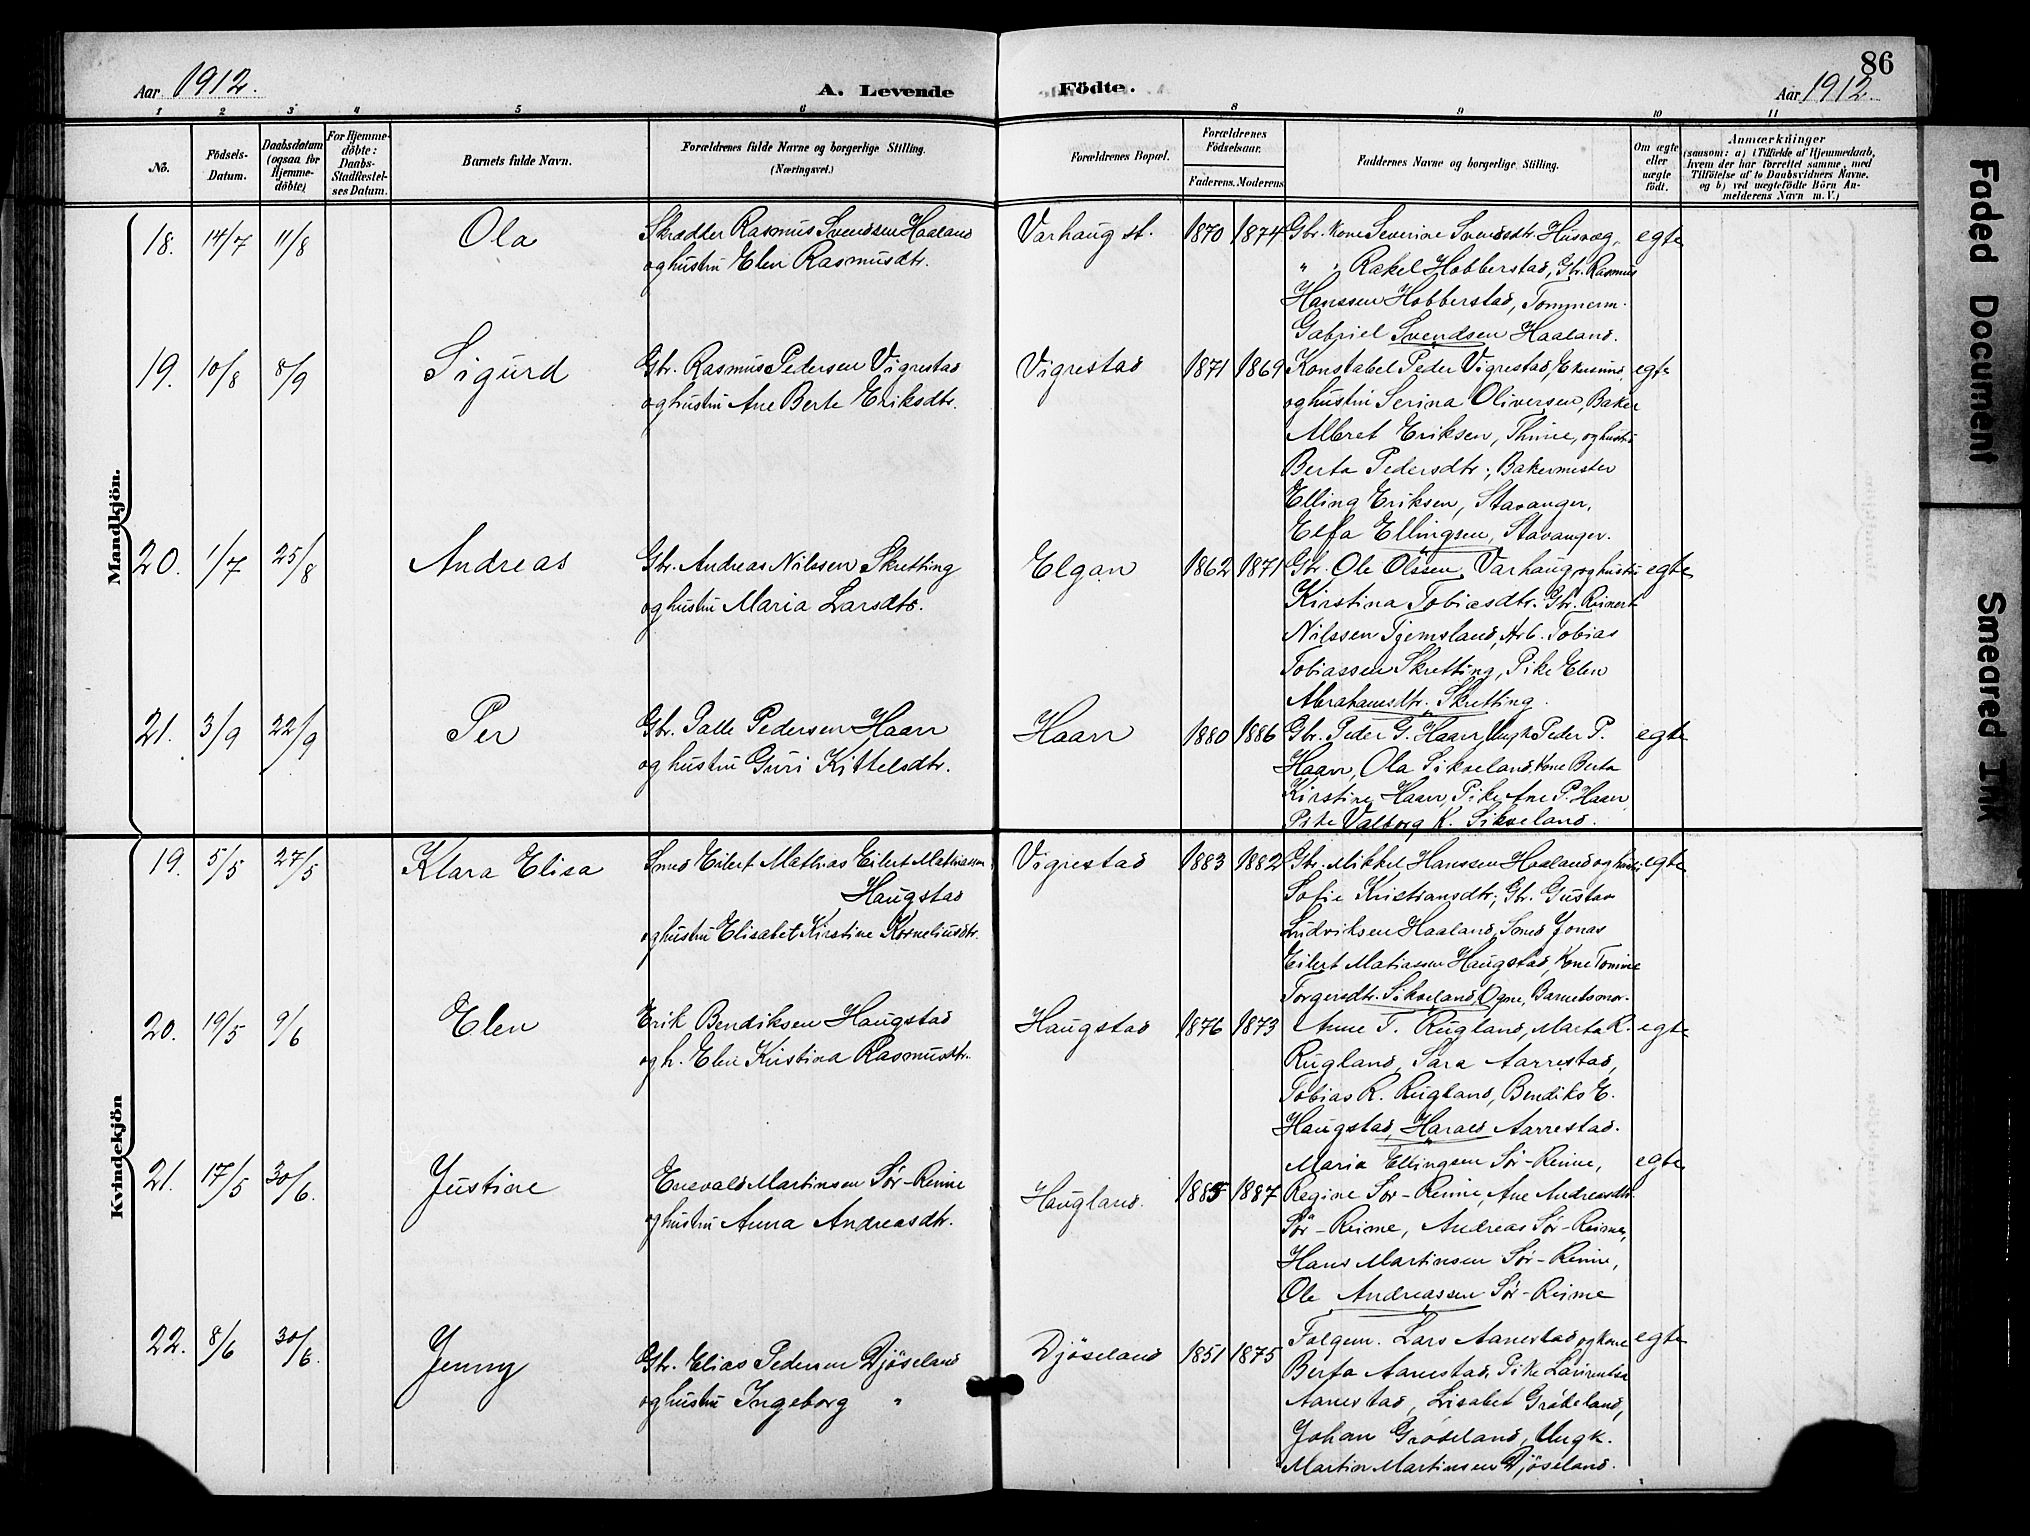 86
Aar 1912.
A. Levende
Födte.
Aar 1912.
1 2 3 4 5 6 8 9 10 11
No.
Födsels-
Datum.
Daabsdatum
(ogsaa for
Hjemme-
döbte)
For Hjemme-
döbte:
Daabs-
Stadfæstel-
ses Datum.
Barnets fulde Navn.
Forældrenes fulde Navne og borgerlige Stilling.
(Næringsvei.)
Forældrenes Bopæl.
Forældrenes
Födselsaar.
Faderens. Moderens
Faddernes Navne og borgerlige Stilling.
Om ægte
eller
uægte
födt.
Anmærkninger
(saasom: a) i Tilfælde af Hjemmedaab,
hvem der har forrettet samme, med
Tilföielse af to Daabsvidners Navne.
og b) ved uægtefödte Börn An-
melderens Navn m. V.)
Mandkjön.
18. 14/7 11/8 Ola
Skrædder Rasmus Svendsen Haaland
og hustru Elen Rasmusdtr.
Varhaug st. 1870 1874
Gbr. kone Severine Svendsdtr. Husvæg,
" " Rakel Hobberstad, Gbr. Rasmus
Hanssen Hobberstad, Tømmerm.
Gabriel Svendsen Haaland.
egte
19. 10/8 8/9 Sigurd
Gbr. Rasmus Pedersen Vigrestad
og hustru Ane Berte Eriksdtr.
Vigrestad 1871 1869
Konstabel Peder Vigrestad, Ekersund,
og hustru Serina Oliversen, Baker
Albret Eriksen, Thime, og hustru
Berta Pedersdtr., Bakermester
Elling Eriksen, Stavanger,
Elfa Ellingsen, Stavanger.
egte
20. 1/7 25/8 Andreas
Gbr. Andreas Nilssen Skretting
og hustru Maria Larsdtr.
Elgan 1862 1871
Gbr. Ole Olssen Varhaug og hustru
Kirstina Tobiasdtr. Gbr. Reinert
Nilssen Tjemsland, Arb. Tobias
Tobiassen Skretting, Pike Elen
Abrahamsdtr. Skretting.
egte
21. 3/9 22/9 Per
Gbr. Palle Pedersen Haar
og hustru Guri Kittelsdtr.
Haar 1880 1886
Gbr. Peder G. Haar, Ungk Peder P.
Haar, Ola Sikveland, Kone Berta
Kirstine Haar, Pike Ane P. Haar,
Pike Valborg K. Sikveland.
egte
Kvindekjön
19. 5/5 27/5 Klara Elisa
Smed Eilert Mathias Eilert Mathiassen
Haugstad
og hustru Elisabet Kirstine Korneliusdtr.
Vigrestad 1883 1882
Gbr. Mikkel Hanssen Haaland og hustru
Sofie Kristiansdtr; Gbr. Gustav
Ludviksen Haaland, Smed Jonas
Eilert Matiassen Haugstad, Kone Tomine
Torgersdtr. Sikveland, Ogne, Barnetsmor.
egte
20. 19/5 9/6 Elen
Erik Bendiksen Haugstad
og h. Elen Kirstina Rasmusdtr.
Haugstad 1876 1873
Anne T. Rugland, Marta R.
Rugland, Sara Aarrestad,
Tobias R. Rugland, Bendiks E.
Haugstad, Harald Aarrestad.
egte
21. 17/5 30/6. Justine
Enevald Martinsen Sør-Reime
og hustru Anna Andreasdtr.
Haugland. 1885 1887
Maria Ellingsen Sør-Reime,
Regine Sør-Reime, Ane Andreasdtr.
Sør-Reime, Andreas Sør-Reime,
Hans Martinsen Sør-Reime,
Ole Andreassen Sør-Reime
egte
22. 8/6 30/6. Jenny
Gbr. Elias Pedersen Djöseland
og hustru Ingeborg "
Djöseland 1851 1875
Folgem. Lars Aanestad og kone
Berta Aanestad, Pike Laurentse
Aanestad, Lisabet Grødeland,
Johan Grødeland, Ungk.
Martin Martinsen Djöseland.
egte
Faded Document
Smeared Ink